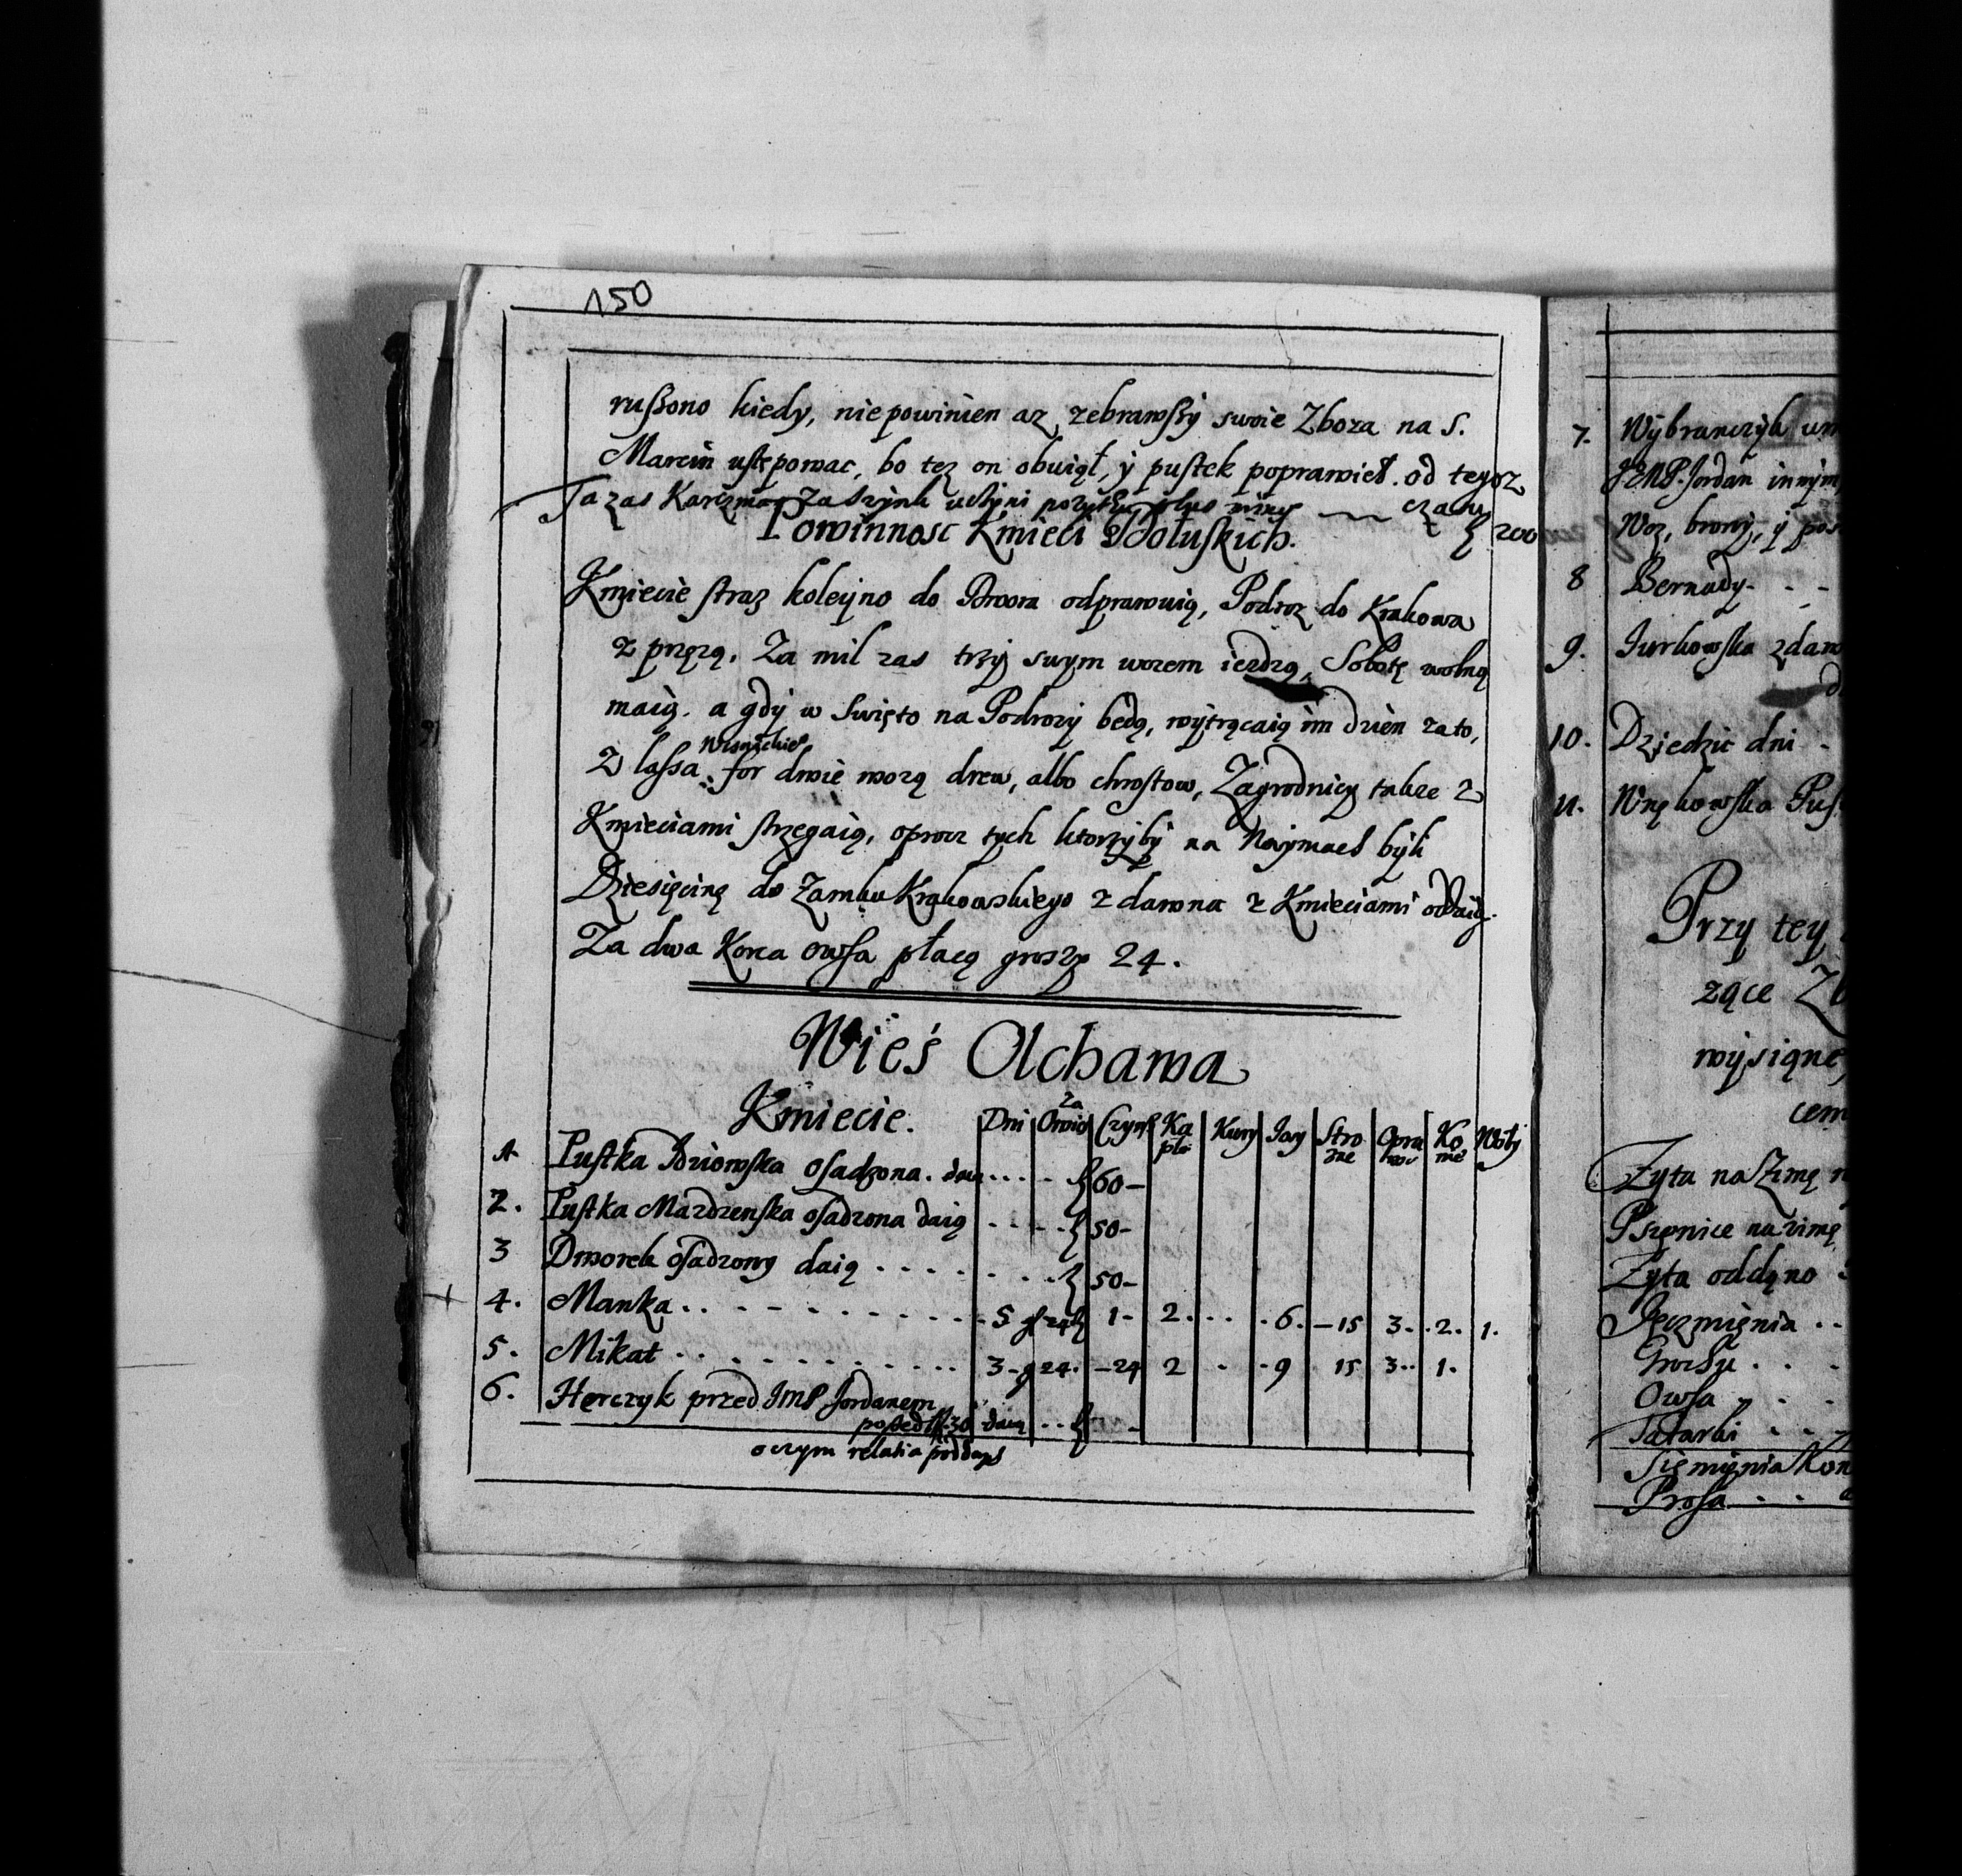 150
rußono kiedy, niepowinien az zebrawszy swoie Zboza na S.
Marcin ustępowac, bo tez on obwiąt, y pustek poprawieł. od tegoz
czasu
Ta zas Karczma za
200
Powinnosc Kmieci
Kmiecie straz koleyno do Dwora odprawuią, Podroz do Krakowa
z przęzą. Za mil zas trzy swym wozem iezdzą, Sobotę wolną
maią. a gdy w Swięto na Podrozy będą, wytrącaią im dzien za to,
Z lassa Wisnickie for dwie wozą drew, albo chrostow, Zagrodnicy takze z
Kmieciami strzegaią, oprocz tych ktorzyby na Naymach byli
Dziesięcinę do Zamku Krakowskiego z dawna z Kmieciami oddaią.
Za dwa Korca owsa płacą groszy 24.
Wieś Olchawa
Kmiecie. Dni Za Owies Czyn Ka pło Kury Jay Stro zne Opra wa Ko nie Woły
1 Pustka osadzona. daią . . . . 60-
2. Pustka Mazdzenska osadzona daią . . . . 50-
3 Dworek osadzony daią . . . . 50-
4. Manka . . . . 5 24 1- 2. . . . 6. -15 3. . 2. 1.
5. Mikat . . . . 3- g 24. -24 2 . - 9 15 3.. 1.
6. Herczyk przed JmP Jordanem
30 daią . .
o czym relatia poddans
7. Wybranczyk
JEMP. Jordan innym
Woz, brony, y
8 Bernady - - -
9. Jurkowska
10. Dziedzic dni -
11.
Przy tey
zące
wysiane,
cem
Zyta na Zimę
Pszenice na zimę
Zyta oddano
Jęczmięnia . .
Grochu . . .
Owsa . . .
Tatarki . . .
Siemięnia Kon
Prosa . . .